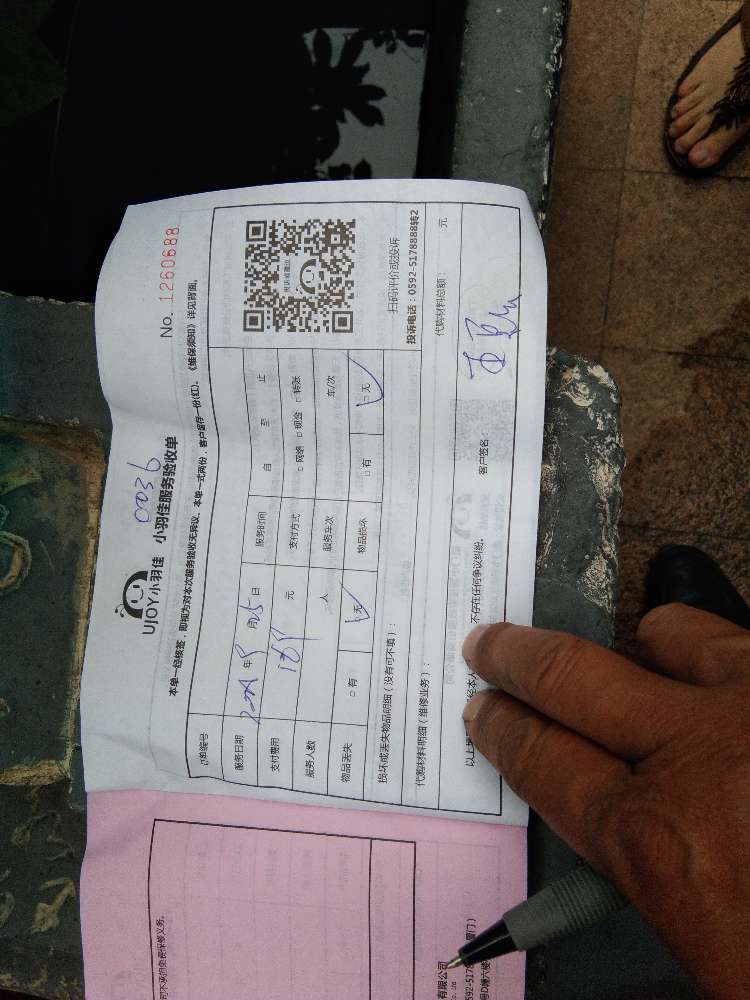 No. 1260688
0036
UJOY小羽佳 小羽佳服务验收单
本单一经核签，即视为对本次服务验收无异议。本单一式两份，客户留存一份(红)。《维保须知》详见背面。
订单编号
服务日期 年 月 25 日 服务时间 自 至 止
支付费用 元 支付方式 □网络 □现金 □转账
服务人数 人 服务车次 车/次
物品丢失 □有 □无 物品损坏 □有 □无
投诉或建议
扫码评价或投诉
投诉电话：0592-5178888转2
损坏或丢失物品明细（没有可不填）：
代购材料明细（维修业务）： 代购材料总额： 元
以上 经本人 不存在任何争议纠纷。 客户签名： 王
司不承担免费保修义务。
有限公司
Co. Ltd
592-5178 厦门）
号D幢六楼